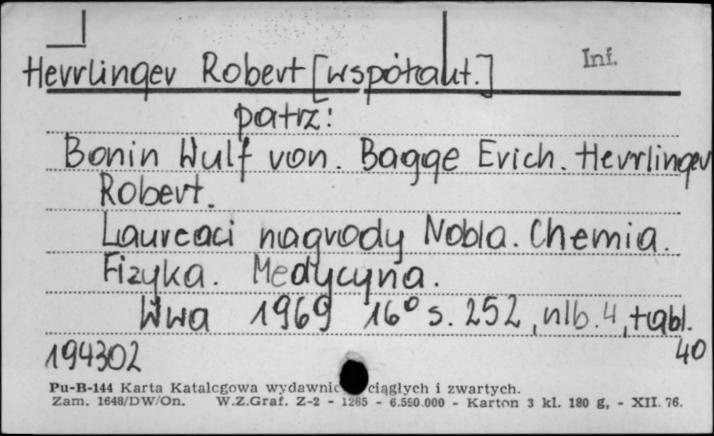 Herrlinger Robert [współaut.] Inf.
patrz:
Bonin Wulf von. Bagge Erich. Herrlinger
Robert.
Laureaci nagrody Nobla. Chemia.
Fizyka. Medycyna.
Wwa 1969 16° s. 252, nlb. 4, tabl.
40
194302
Pu-B-144 Karta Katalogowa wydawnic ciągłych i zwartych.
Zam. 1648/DW/On. W.Z.Graf. Z-2 - 1265 - 6.550.000 - Karton 3 kl. 180 g, - XII. 76.